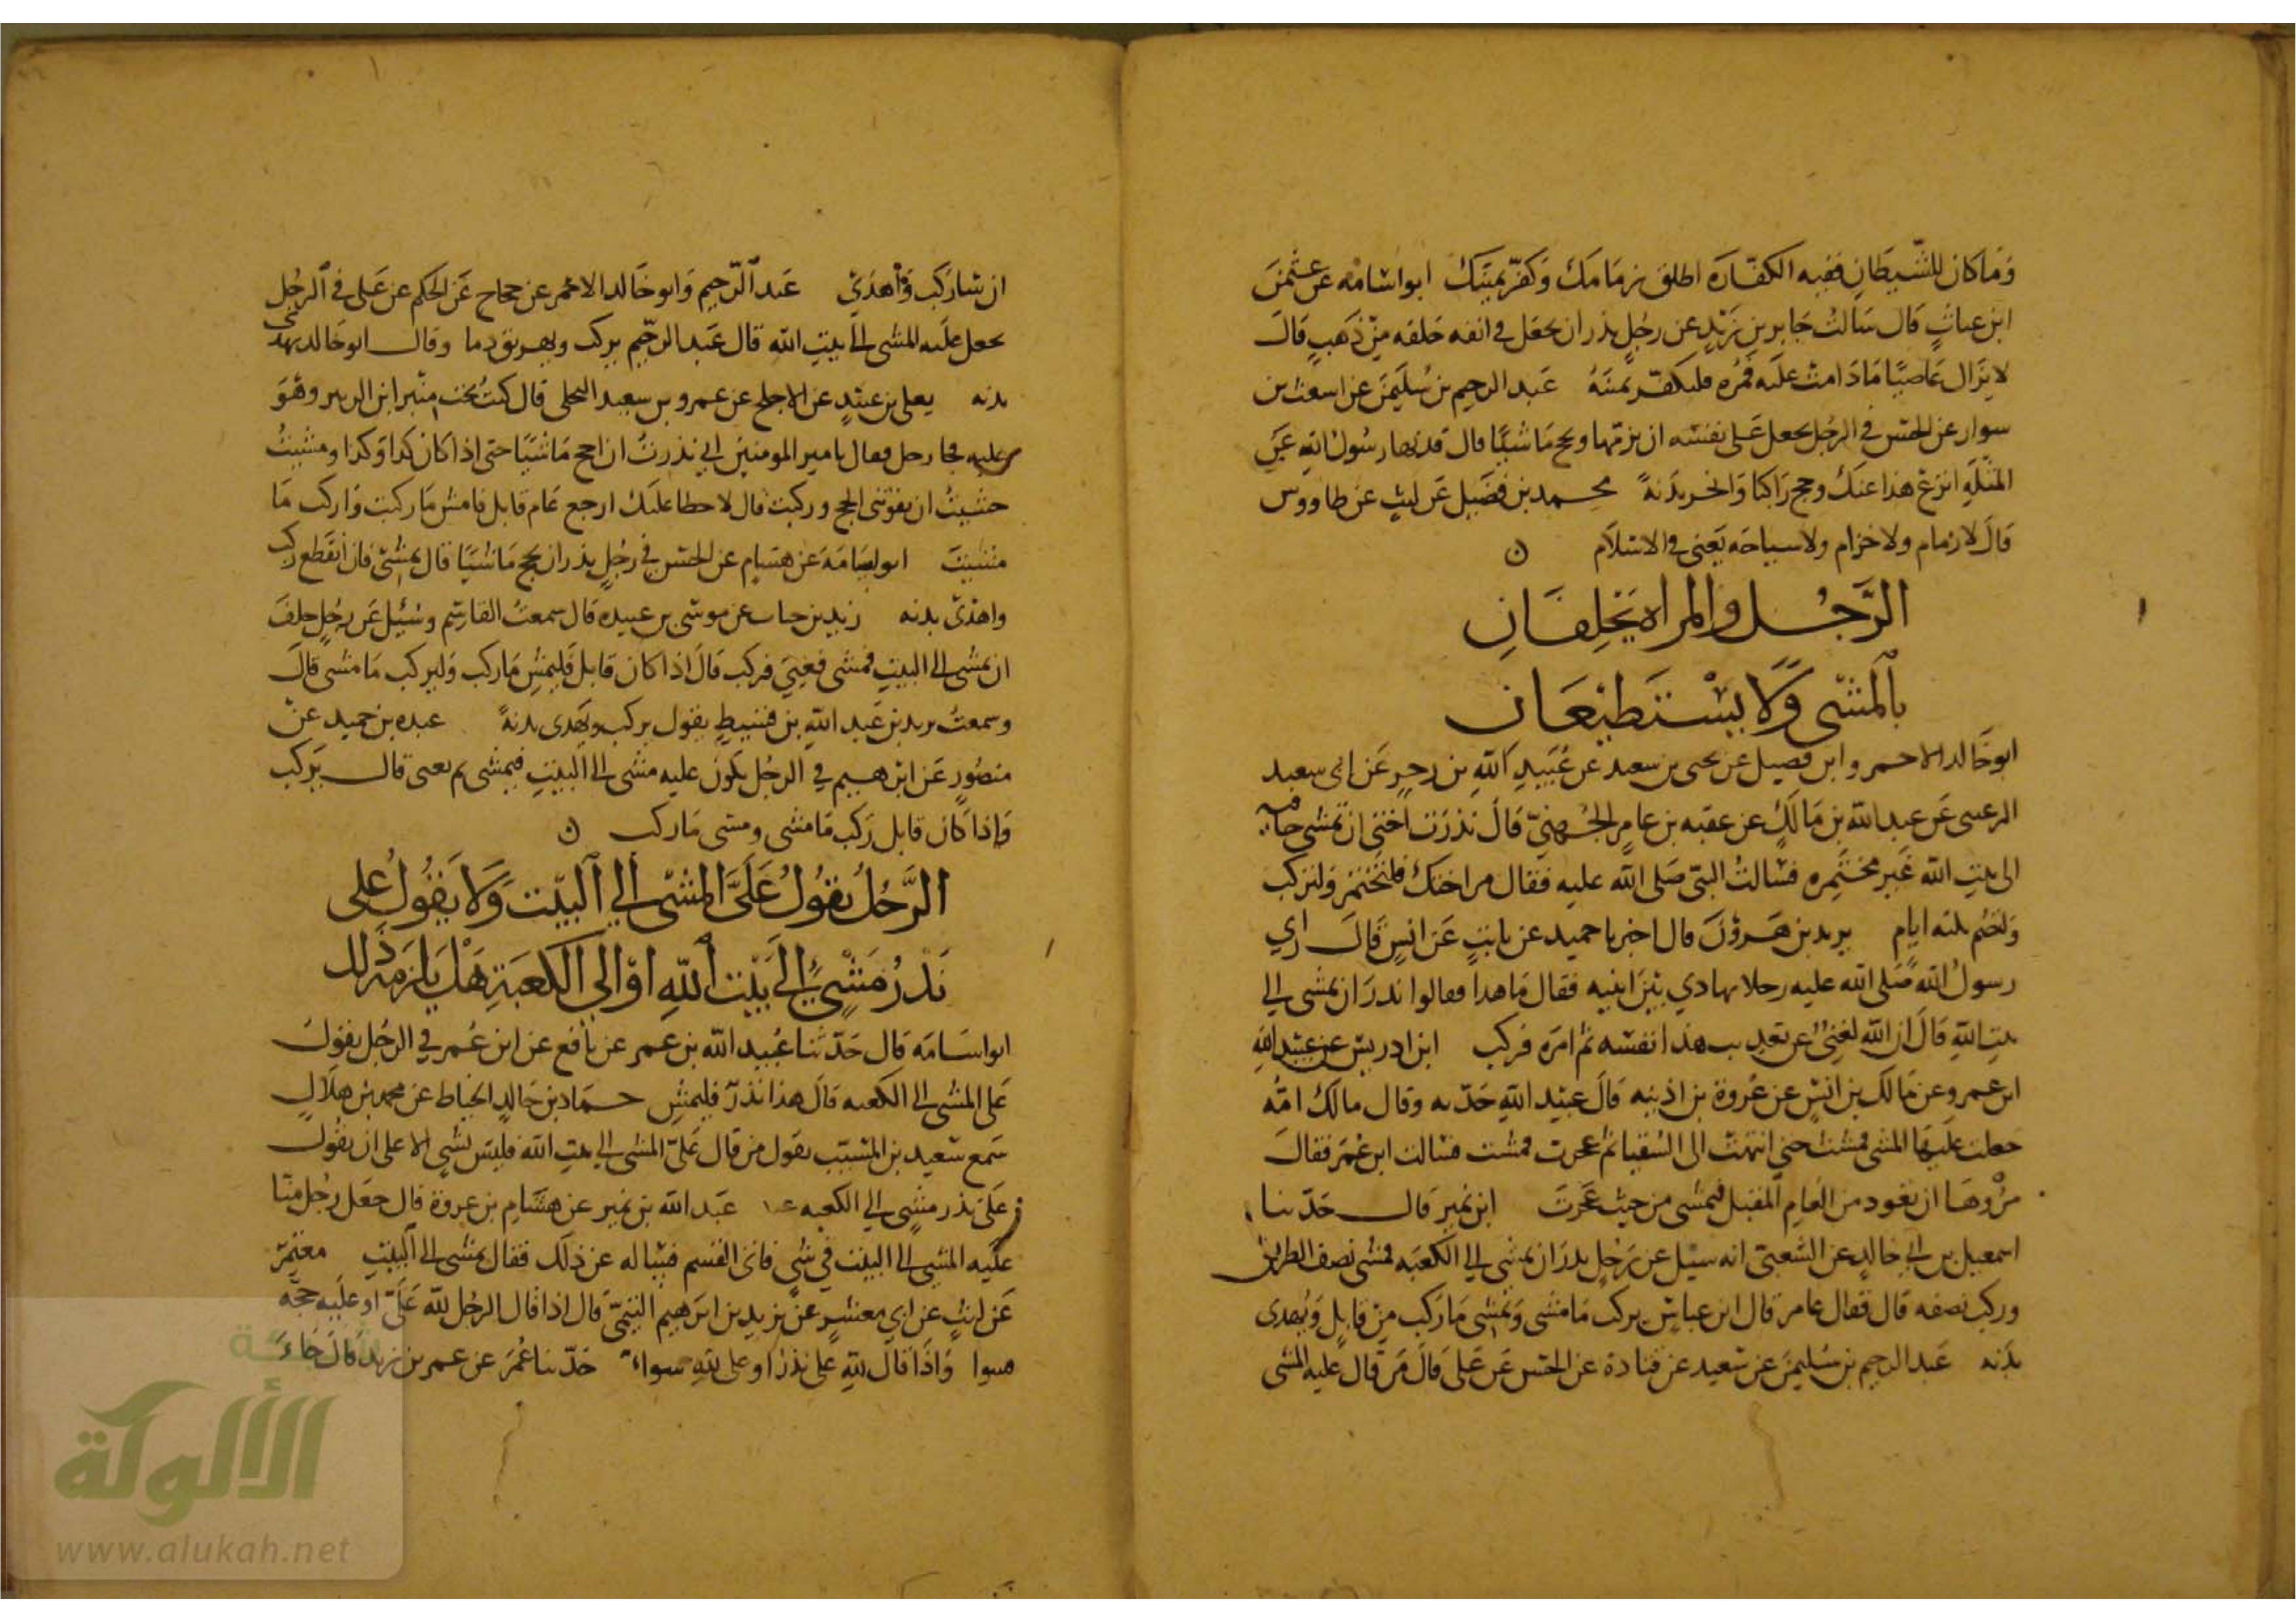 وما كان للشيطان ففيه الكفارة اطلق زمامك وكفر يمينك ابو اسامه عن عثمن
ابن غياث قال سالت جابر بن زيد عن رجل نذر ان يجعل في انفه حلقه من ذهب قال
لا يزال عاصيا ما دامت عليه فمره فليكفر يمينه عبد الرحيم بن سليمن عن اشعث بن
سوار عن الحسن في الرجل يجعل على نفسه ان يزمها ويحج ماشيا قال قد نها رسول الله عن
المثله انزع هذا عنك وحج راكبا وانحر بدنة محمد بن فضيل عن ليث عن طاووس
قال لا زمام ولا خزام ولا سياحه يعني في الاسلام ن
الرجل والمراه يحلفان
بالمشي ولا يستطيعان
ابو خالد الاحمر وابن فضيل عن يحيى بن سعيد عن عبيد الله بن زحر عن ابي سعيد
الرعيني عن عبد الله بن مالك عن عقبه بن عامر الجهني قال نذرت اختي ان تمشي حافيه
الى بيت الله غير مختمره فسالت النبي صلى الله عليه فقال مر اختك فلتختمر ولتركب
ولتصم ثلثه ايام يزيد بن هرون قال اخبرنا حميد عن ثابت عن انس قال راي
رسول الله صلى الله عليه رجلا يهادي بين ابنيه فقال ما هذا فقالوا نذر ان يمشي الى
بيت الله قال ان الله لغني عن تعذيب هذا نفسه ثم امره فركب ابن ادريس عن عبيد الله
ابن عمر وعن مالك بن انس عن عروة بن اذينه قال عبيد الله جدته وقال مالك امه
جعلت عليها المشي فمشت حتى انتهت الى السقيا ثم عجزت فمشت فسالت ابن عمر فقال
مروها ان تعود من العام المقبل فتمشي من حيث عجزت ابن نمير قال حدثنا
اسمعيل بن ابي خالد عن الشعبي انه سيل عن رجل نذر ان يمشي الى الكعبه فمشى نصف الطريق
وركب نصفه قال فقال عامر قال ابن عباس يركب ما مشى ويمشي ما ركب من قابل ويهدى
بدنه عبد الرحيم بن سليمن عن سعيد عن قتادة عن الحسن عن علي قال من قال عليه المشي
ان شا ركب واهدي عبد الرحيم وابو خالد الاحمر عن حجاج عن الحكم عن علي في الرجل
يجعل عليه المشي الى بيت الله قال عبد الرحيم يركب ويهريق دما وقال ابو خالد يهدي
بدنه يعلى بن عبيد عن الاجلح عن عمرو بن سعيد البجلي قال كنت تحت منبر ابن الزبير وهو
عليه فجا رجل فقال يا مير المومنين اني نذرت ان احج ماشيا حتى اذا كان كذا وكذا ومشيت
خشيت ان يفوتني الحج وركبت قال لا خطا عليك ارجع عام قابل فامش ما ركبت واركب ما
مشيت ابو اسامه عن هشام عن الحسن في رجل نذر ان يحج ماشيا قال يمشي فان انقطع ركب
واهدى بدنه زيد بن حباب عن موسى بن عبيده قال سمعت القاسم وسئيل عن رجل حلف
ان يمشي الى البيت فمشى فعيي فركب قال اذا كان قابل فليمش ما ركب وليركب ما مشى قال
وسمعت يزيد بن عبد الله بن قسيط يقول يركب ويهدى بدنة عبده بن حميد عن
منصور عن ابرهيم في الرجل يكون عليه مشى الى البيت فيمشي ثم يعيى قال يركب
واذا كان قابل ركب ما مشى ومشى ما ركب ن
الرجل يقول علي المشي الي البيت ولا يقول على
نذر مشي الى بيت الله او الي الكعبة هل يلزمه ذلك
ابو اسامه قال حدثنا عبيد الله بن عمر عن نافع عن ابن عمر في الرجل يقول
على المشي الى الكعبه قال هذا نذر فليمش حماد بن خالد الخياط عن محمد بن هلال
سمع سعيد بن المسيب يقول من قال علي المشي الي بيت الله فليس بشي الا على ان يقول
علي نذر مشي الي الكعبه عبد الله بن نمير عن هشام بن عروة قال جعل رجل منا
عليه المشي الى البيت في شي فاتى القسم فساله عن ذلك فقال يمشي الى البيت معتمر
عن ليث عن ابي معشر عن يزيد بن ابرهيم التيمي قال اذا قال الرجل لله علي او عليه حجه
سوا واذا قال لله علي نذر او على لله سواء حدثنا عمر عن عمر بن زيد قال جاء
الألوكة
www.alukah.net